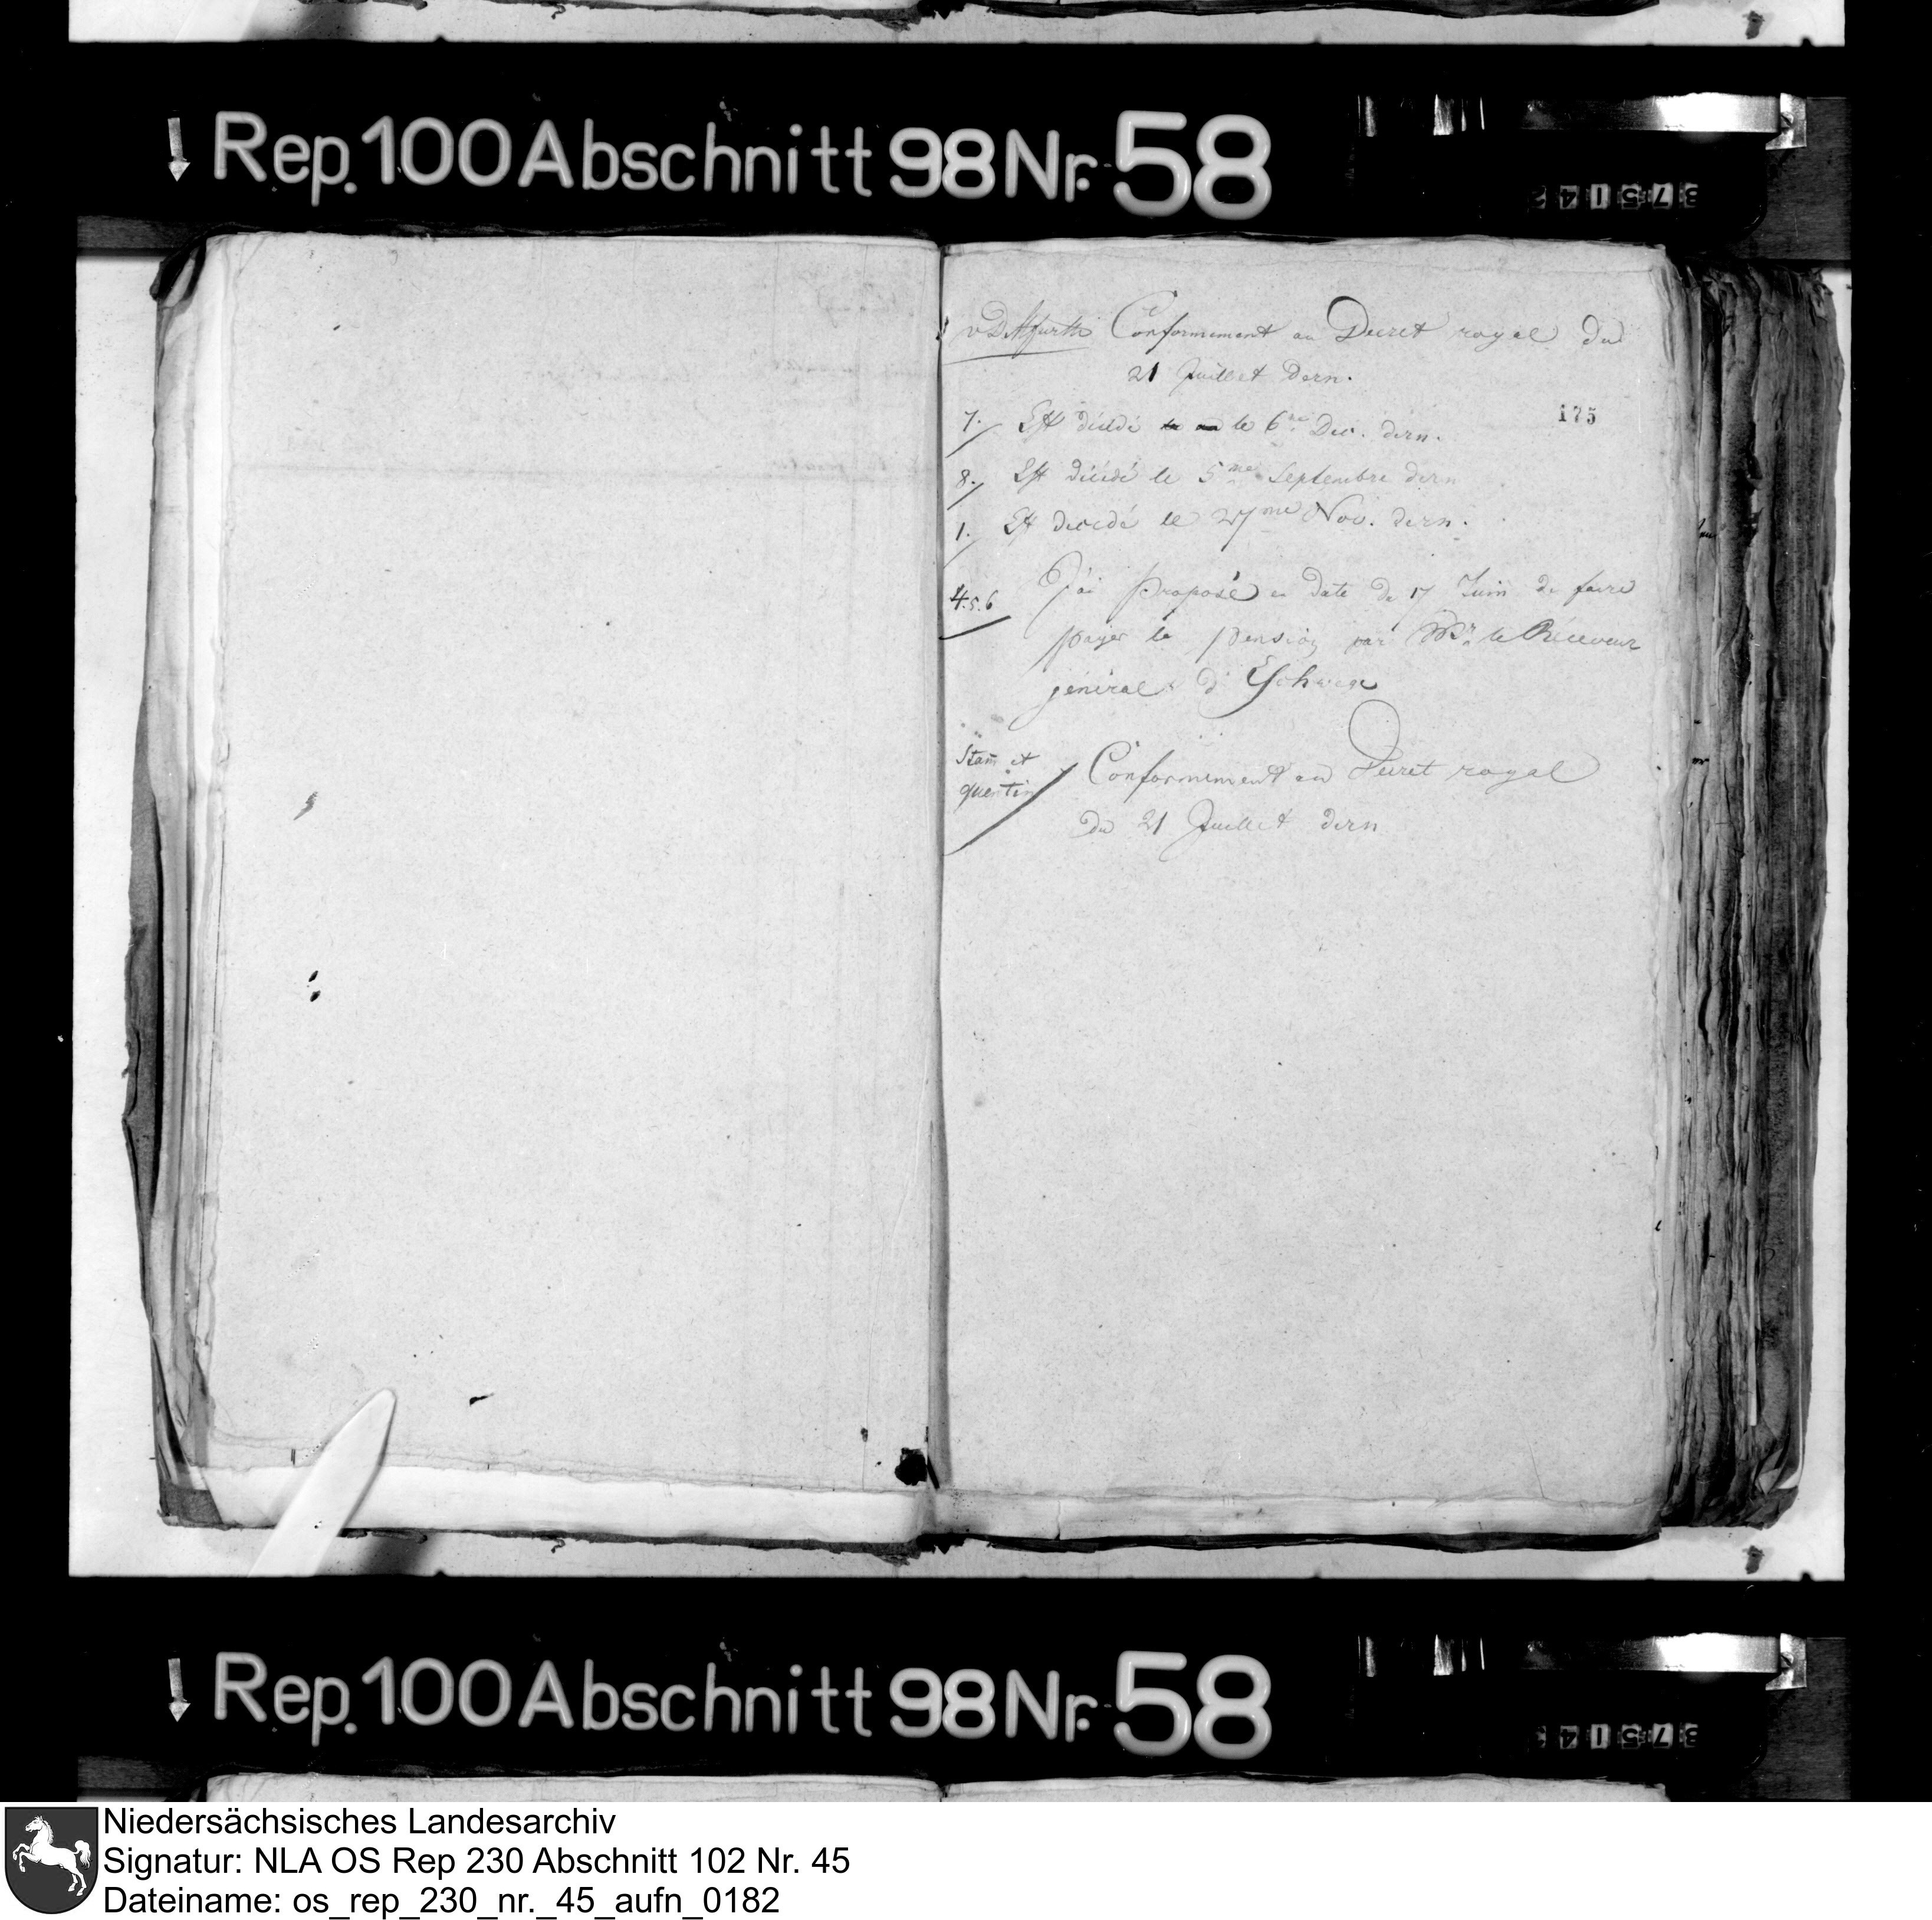 Rep. 100 Abschnitt 98 Nr. 58
Conformement au Decret royal du
21 Juillet dern.
175
7. Est décédé le 6me Dec. dern.
8. Est décédé le 5me Septembre dern
1. Est decedé le 27me Nov. dern.
4.5.6 J'ai proposé en date de 17 Juin de faire
payer la pension par Mr. le Receveur
général d'Eschwege
Stam et
quentin
Conformement au Decret royal
du 21 Juillet dern
Rep. 100 Abschnitt 98 Nr. 58
Niedersächsisches Landesarchiv
Signatur: NLA OS Rep 230 Abschnitt 102 Nr. 45
Dateiname: os_rep_230_nr._45_aufn_0182